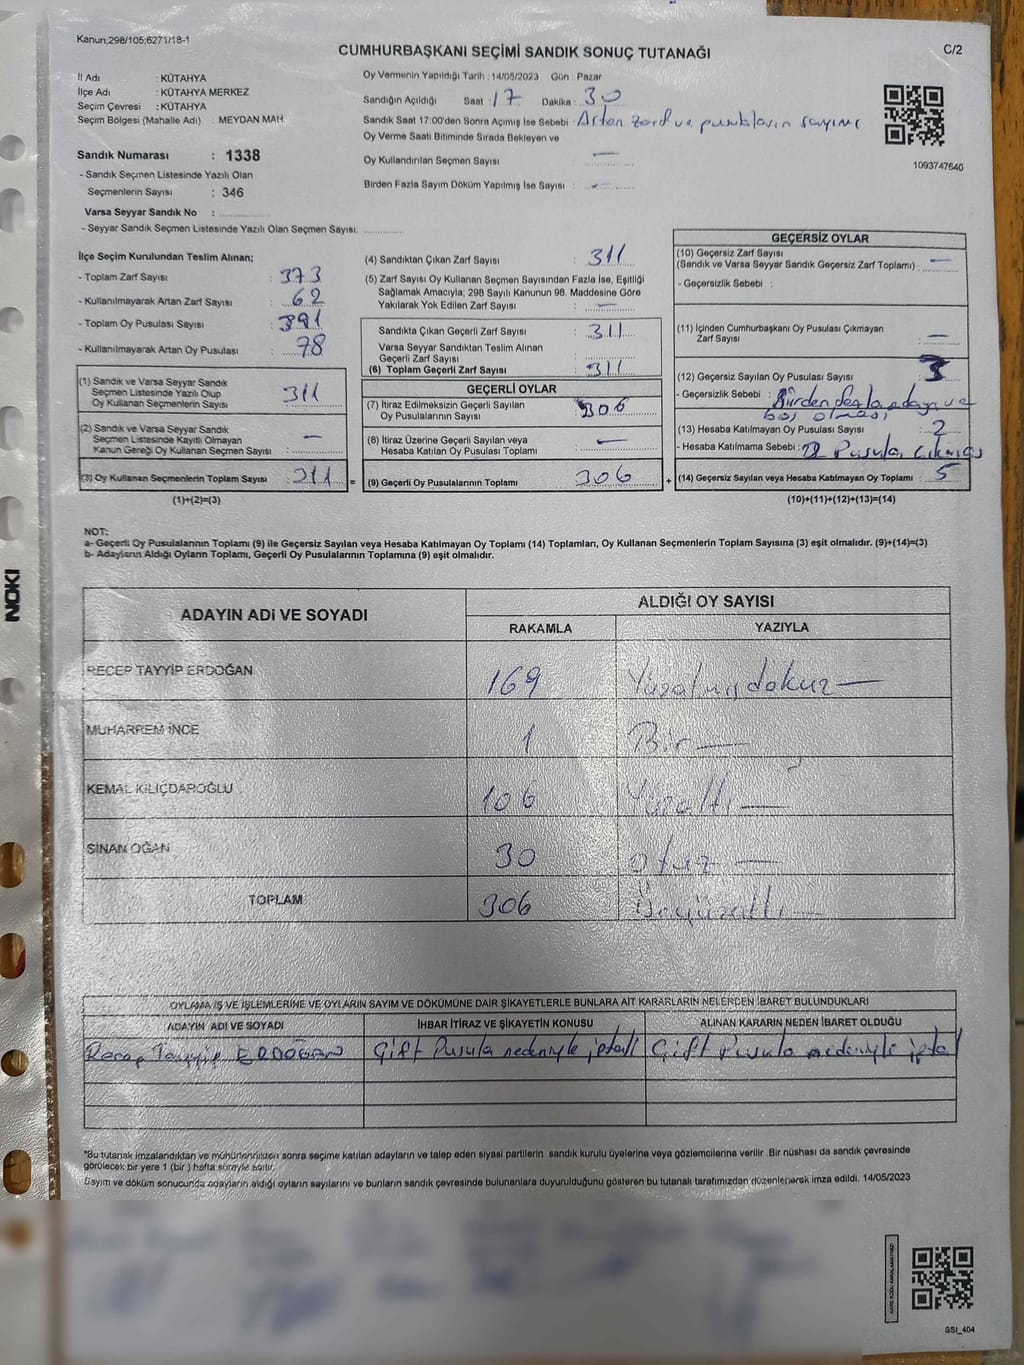 Kanun;298/105;6271/18-1
C/2
CUMHURBAŞKANI SEÇİMİ SANDIK SONUÇ TUTANAĞI
İl Adı : KÜTAHYA
İlçe Adı : KÜTAHYA MERKEZ
Seçim Çevresi : KÜTAHYA
Seçim Bölgesi (Mahalle Adı) : MEYDAN MAH
Sandık Numarası : 1338
- Sandık Seçmen Listesinde Yazılı Olan
Seçmenlerin Sayısı : 346
Varsa Seyyar Sandık No :
- Seyyar Sandık Seçmen Listesinde Yazılı Olan Seçmen Sayısı:
Oy Vermenin Yapıldığı Tarih : 14/05/2023 Gün : Pazar
Sandığın Açıldığı Saat : 17 Dakika : 30
Sandık Saat 17:00'den Sonra Açımış İse Sebebi : Artan zarf ve pusulaların sayımı
Oy Verme Saati Bitiminde Sırada Bekleyen ve
Oy Kullandırılan Seçmen Sayısı : —
Birden Fazla Sayım Döküm Yapılmış İse Sayısı : -
1093747640
İlçe Seçim Kurulundan Teslim Alınan;
- Toplam Zarf Sayısı : 373
- Kullanılmayarak Artan Zarf Sayısı : 62
- Toplam Oy Pusulası Sayısı : 391
- Kullanılmayarak Artan Oy Pusulası : 78
(1) Sandık ve Varsa Seyyar Sandık
Seçmen Listesinde Yazılı Olup
Oy Kullanan Seçmenlerin Sayısı : 311
(2) Sandık ve Varsa Seyyar Sandık
Seçmen Listesinde Kayıtlı Olmayan
Kanun Gereği Oy Kullanan Seçmen Sayısı : —
(3) Oy Kullanan Seçmenlerin Toplam Sayısı : 311 =
(1)+(2)=(3)
(4) Sandıktan Çıkan Zarf Sayısı : 311
(5) Zarf Sayısı Oy Kullanan Seçmen Sayısından Fazla İse, Eşitliği
Sağlamak Amacıyla; 298 Sayılı Kanunun 98. Maddesine Göre
Yakılarak Yok Edilen Zarf Sayısı : —
Sandıkta Çıkan Geçerli Zarf Sayısı : 311
Varsa Seyyar Sandıktan Teslim Alınan
Geçerli Zarf Sayısı :
(6) Toplam Geçerli Zarf Sayısı : 311
GEÇERLİ OYLAR
(7) İtiraz Edilmeksizin Geçerli Sayılan
Oy Pusulalarının Sayısı : 306
(8) İtiraz Üzerine Geçerli Sayılan veya
Hesaba Katılan Oy Pusulası Sayısı : —
(9) Geçerli Oy Pusulalarının Toplamı : 306 +
GEÇERSİZ OYLAR
(10) Geçersiz Zarf Sayısı
(Sandık ve Varsa Seyyar Sandık Geçersiz Zarf Toplamı) : —
- Geçersizlik Sebebi :
(11) İçinden Cumhurbaşkanı Oy Pusulası Çıkmayan
Zarf Sayısı : —
(12) Geçersiz Sayılan Oy Pusulası Sayısı : 3
- Geçersizlik Sebebi : Birden fazla adaya ve
boş olması
(13) Hesaba Katılmayan Oy Pusulası Sayısı : 2
- Hesaba Katılmama Sebebi : Pusula çıkması
(14) Geçersiz Sayılan veya Hesaba Katılmayan Oy Toplamı : 5
(10)+(11)+(12)+(13)=(14)
NOT:
a- Geçerli Oy Pusulalarının Toplamı (9) ile Geçersiz Sayılan veya Hesaba Katılmayan Oy Toplamı (14) Toplamları, Oy Kullanan Seçmenlerin Toplam Sayısına (3) eşit olmalıdır. (9)+(14)=(3)
b- Adayların Aldığı Oyların Toplamı, Geçerli Oy Pusulalarının Toplamına (9) eşit olmalıdır.
NOKI
ADAYIN ADI VE SOYADI
ALDIĞI OY SAYISI
RAKAMLA YAZIYLA
RECEP TAYYİP ERDOĞAN 169 Yüzaltmışdokuz —
MUHARREM İNCE 1 Bir —
KEMAL KILIÇDAROĞLU 106 Yüzaltı —
SİNAN OĞAN 30 otuz —
TOPLAM 306 Üçyüzaltı —
OYLAMA İŞ VE İŞLEMLERİNE VE OYLARIN SAYIM VE DÖKÜMÜNE DAİR ŞİKAYETLERLE BUNLARA AİT KARARLARIN NELERDEN İBARET BULUNDUKLARI
ADAYIN ADI VE SOYADI İHBAR İTİRAZ VE ŞİKAYETİN KONUSU ALINAN KARARIN NEDEN İBARET OLDUĞU
Recep Tayyip ERDOĞAN Çift Pusula nedeniyle iptali Çift Pusula nedeniyle iptal
*Bu tutanak imzalandıktan ve mühürlendikten sonra seçime katılan adayların ve talep eden siyasi partilerin sandık kurulu üyelerine veya gözlemcilerine verilir .Bir nüshası da sandık çevresinde
görülecek bir yere 1 (bir ) hafta süreyle asılır.
Sayım ve döküm sonucunda adayların aldığı oyların sayılarını ve bunların sandık çevresinde bulunanlara duyurulduğunu gösteren bu tutanak tarafımızdan düzenlenerek imza edildi. 14/05/2023
SSI_404